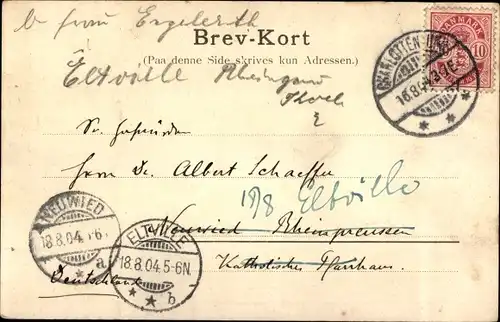 Brev-Kort
(Paa denne Side skrives kun Adressen.)
Eltville Rheingau
DANMARK
10
CHARLOTTENLUND
16.8.04
Herrn Dr. Albert Schaeffer
18/8 Eltville
Neuwied Rheinpreussen
Katholisches Pfarrhaus.
Deutschland
NEUWIED
18.8.04.
a
ELTVILLE
18.8.04.5-6N.
b